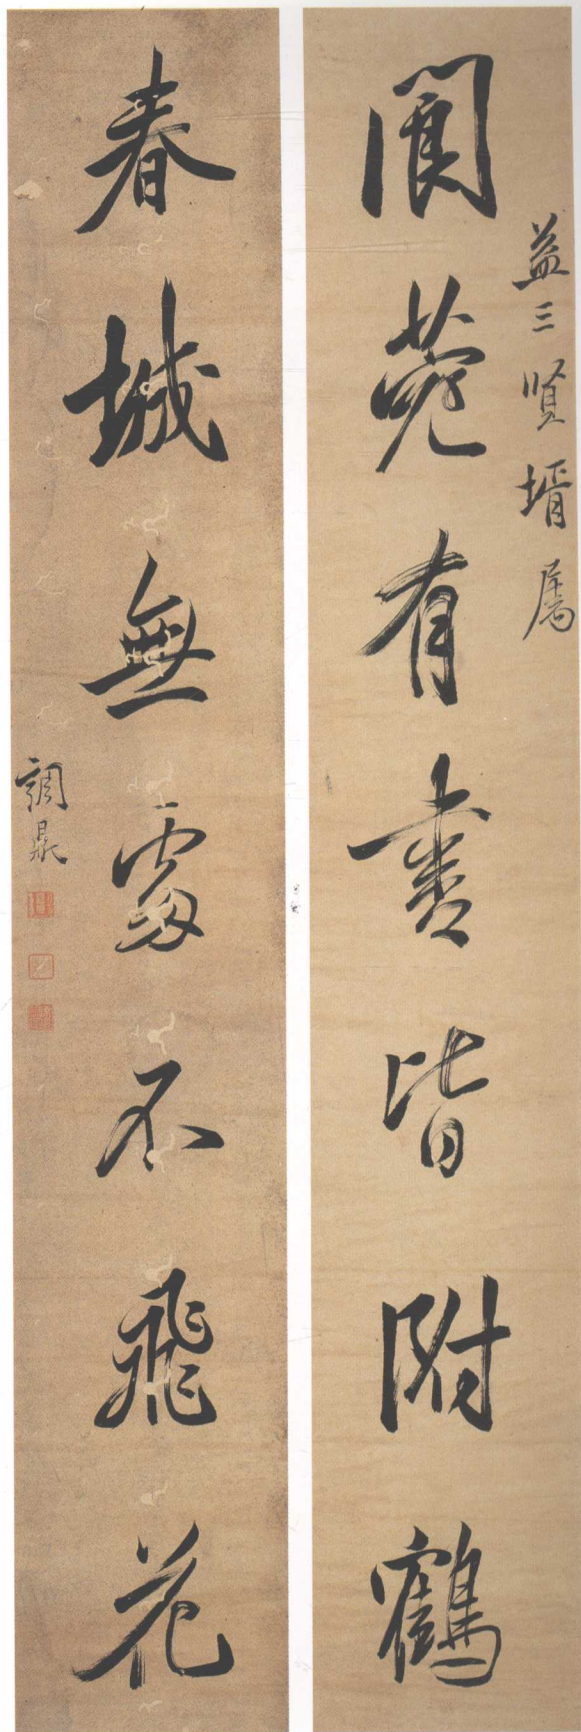 益三贤壻属
閬苑有書皆附鶴
春城無處不飛花
調鼎